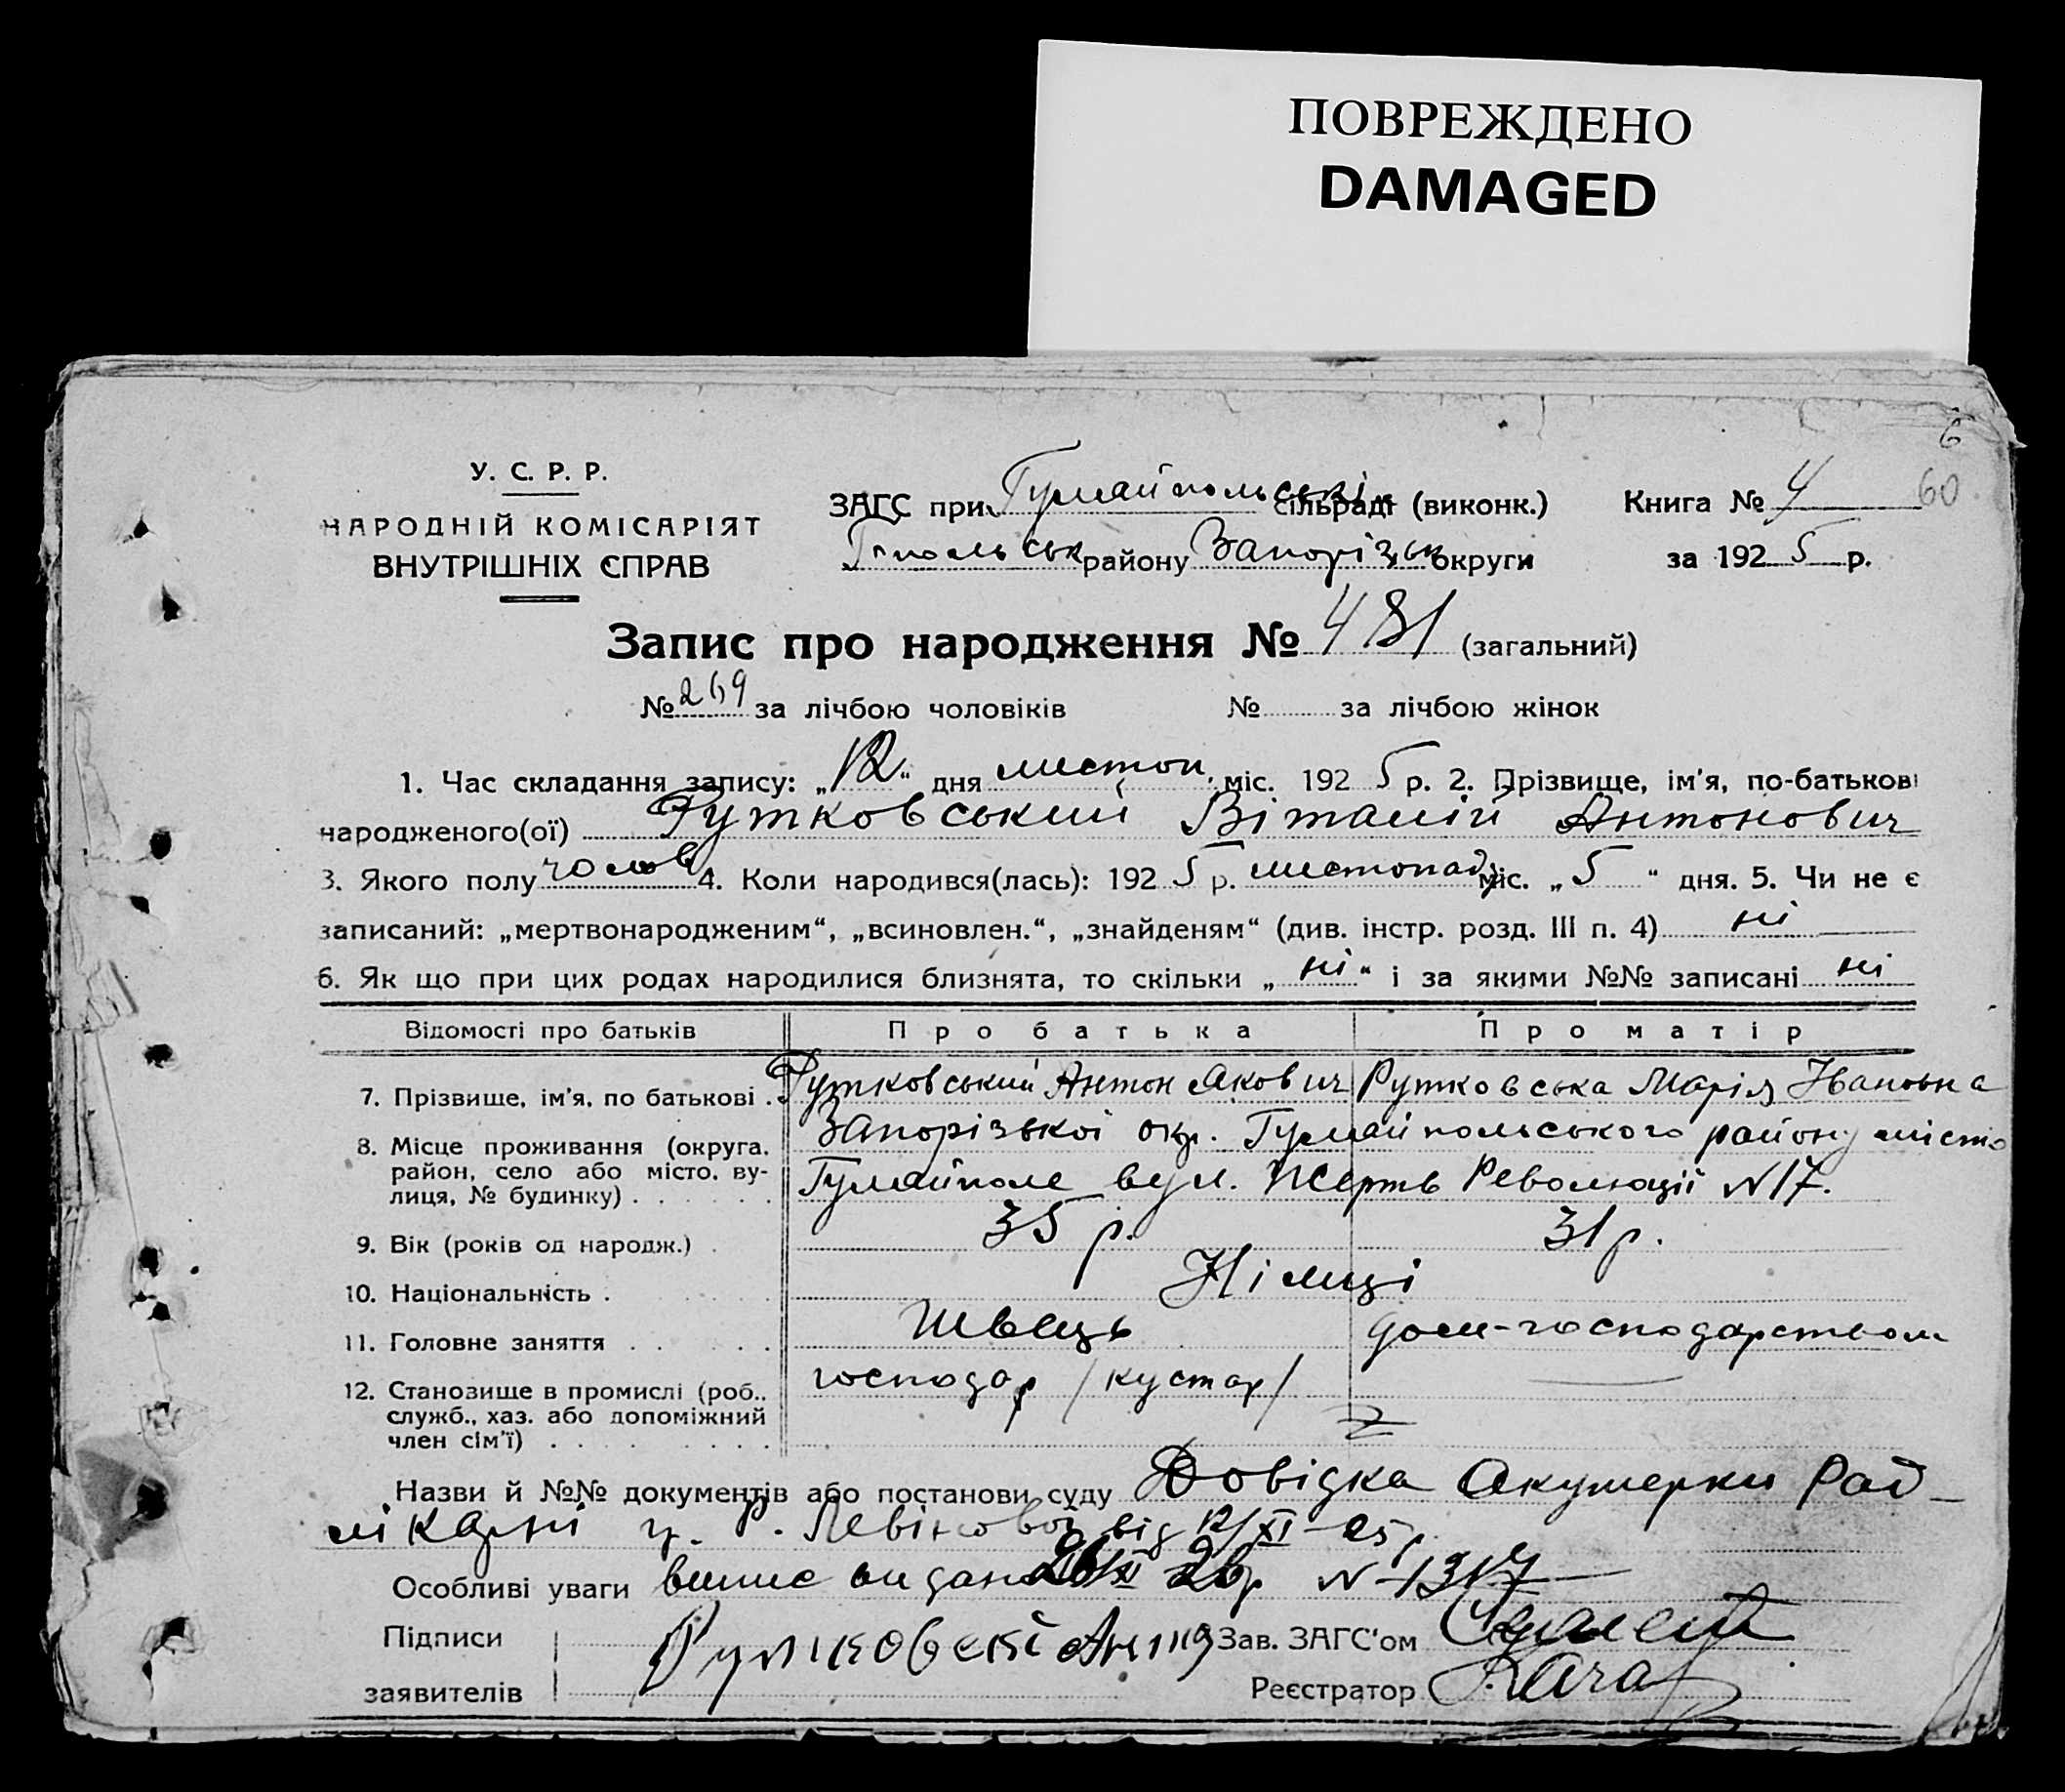 ПОВРЕЖДЕНО
DAMAGED
6
60
У. С. Р. Р.
НАРОДНІЙ КОМІСАРІЯТ
ВНУТРІШНІХ СПРАВ
ЗАГС при Гуляйпольськ. сільраді (виконк.)
Г-польськ району Запорізьк округи
Книга № 4
за 1925 р.
Запис про народження № 481 (загальний)
№ 269 за лічбою чоловіків № за лічбою жінок
1. Час складання запису: „12“ дня листоп. міс. 1925 р. 2. Прізвище, ім'я, по-батькові
народженого(ої) Рутковський Віталій Антонович
3. Якого полу чолов 4. Коли народився(лась): 1925 р. листопаду міс. „5“ дня. 5. Чи не є
записаний: „мертвонародженим“, „всиновлен.“, „знайденям“ (див. інстр. розд. III п. 4) ні
6. Як що при цих родах народилися близнята, то скільки „ні“ і за якими №№ записані ні
Відомості про батьків Про батька Про матір
7. Прізвище, ім'я, по батькові . Рутковський Антон Якович Рутковська Марія Івановна
8. Місце проживання (округа, Запорізької окр. Гуляйпольського району місто
район, село або місто, ву-
лиця, № будинку) . . . . Гуляйполе вул. Жертв Революції N 17.
9. Вік (років од народж.) . 35 р. 31 р.
10. Національність . Німці
11. Головне заняття . . . . . Швець дом-господарством
12. Становище в промислі (роб., господар /кустар/
служб., хаз. або допоміжний
член сім'ї) . . . . . . . .
Назви й №№ документів або постанови суду Довідка Акушерки Рад-
лікарні гр. Р. Левінової від 12/XI-25 р.
Особливі уваги випис видано XI 26р N 1317
Підписи Рутковскі Антон Зав. ЗАГС'ом
заявителів Реєстратор